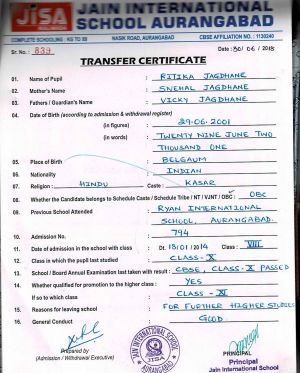 JAIN INTERNATIONAL
SCHOOL AURANGABAD
JISA
COMPLETE SCHOOLING : KG TO XII NASIK ROAD, AURANGABAD CBSE AFFILIATION NO. : 1130240
Sr. No. : 839 Date : 30/06/2018
TRANSFER CERTIFICATE
01. Name of Pupil : RITIKA JAGDHANE
02. Mother's Name : SNEHAL JAGDHANE
03. Fathers / Guardian's Name : VICKY JAGDHANE
04. Date of Birth (according to admission & withdrawal register)
(in figures) : 29-06-2001
(in words) : TWENTY NINE JUNE TWO
THOUSAND ONE
05. Place of Birth : BELGAUM
06. Nationality : INDIAN
07. Religion : HINDU Caste : KASAR
08. Whether the Candidate belongs to Schedule Caste / Schedule Tribe / NT / VJNT / OBC : OBC
09. Previous School Attended : RYAN INTERNATIONAL
SCHOOL, AURANGABAD.
10. Admission No. : 794
11. Date of admission in the school with class : Dt. 13/01/2014 Class : VIII
12. Class in which the pupil last studied : CLASS-X
13. School / Board Annual Examination last taken with result : CBSE, CLASS-X PASSED
14. Whether qualified for promotion to the higher class : YES
If so to which class : CLASS-XI
15. Reasons for leaving school : FOR FURTHER HIGHER STUDIES
16. General Conduct : GOOD.
Prepared by
(Admission / Withdrawal Executive)
JAIN INTERNATIONAL SCHOOL
JISA
AURANGABAD
PRINCIPAL
Principal
Jain International School